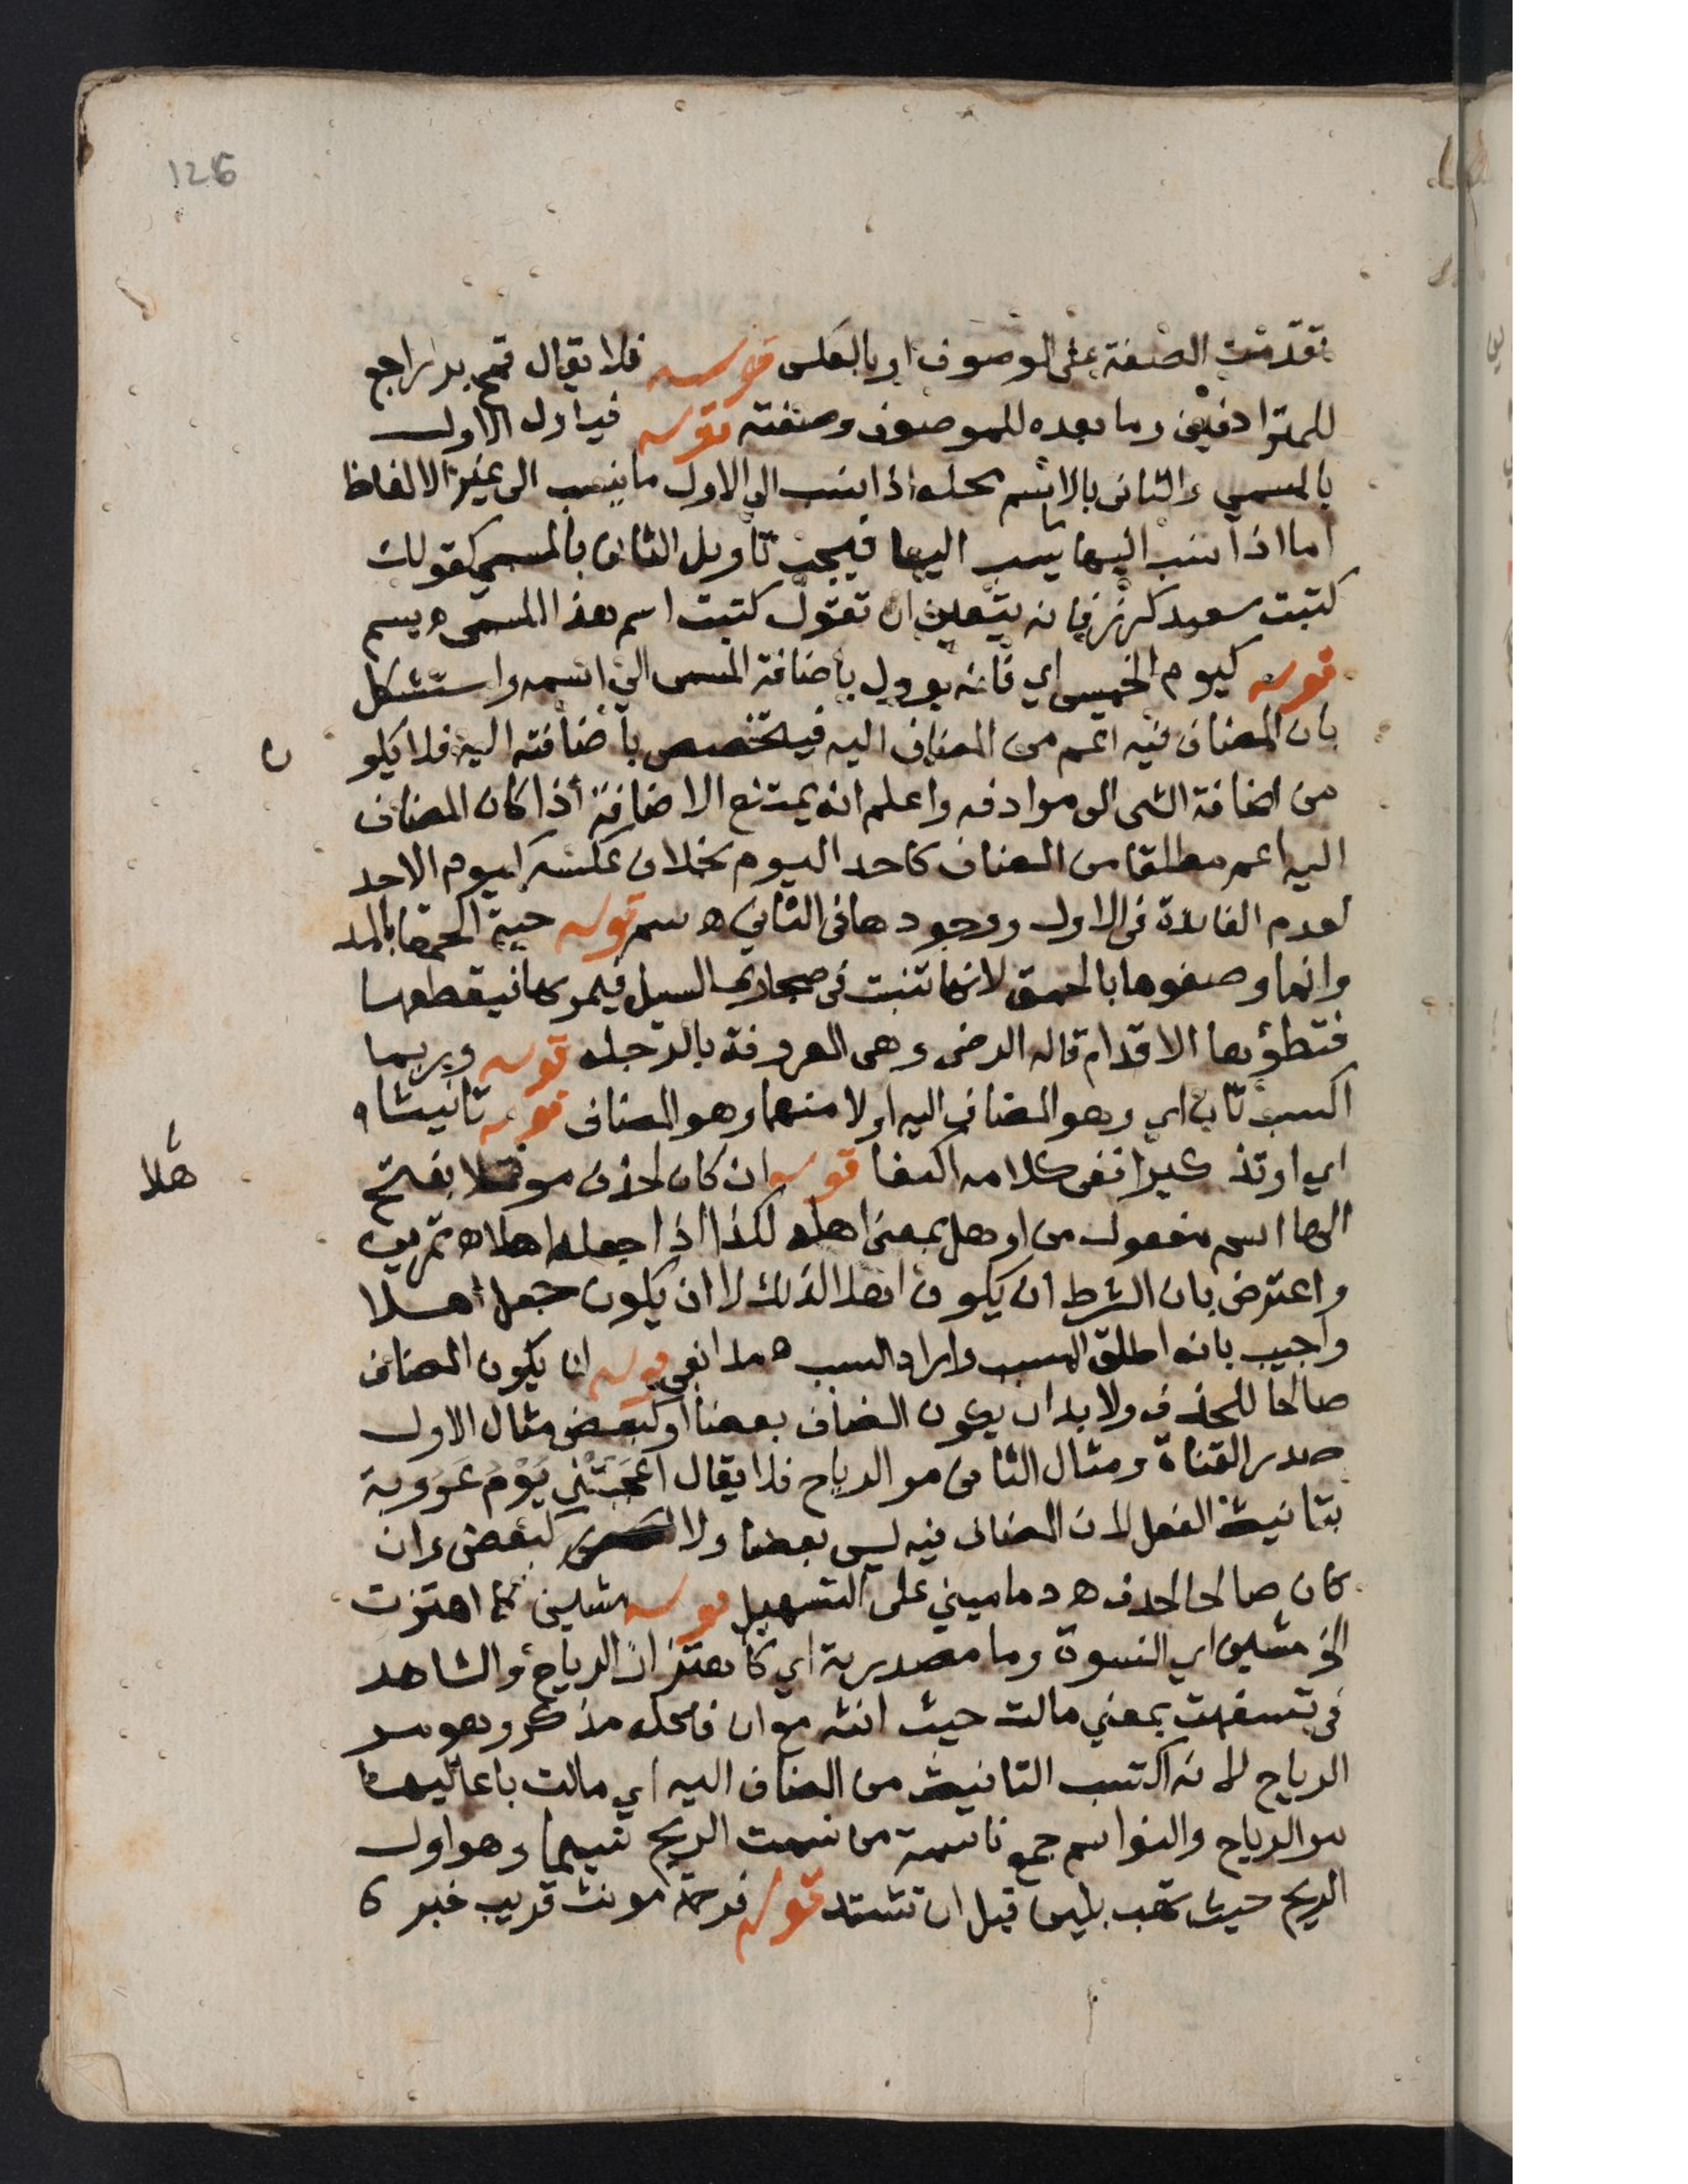 126
تقدمت الصفة على الموصوف او بالعكس قوله فلا يقال قمح بر راجع
للمترادفين وما بعده للموصوف وصفته قوله فيؤول الاول
بالمسمى والثاني بالاسم محله اذا نسب الى الاول ما ينسب الى غير الالفاظ
اما اذا نسب اليها ما ينسب اليها فيجب تاويل الثاني بالمسمى كقولك
كتبت سعيد كرز فانه يتعين ان تقول كتبت اسم هذا المسمى ه يسم
قوله كيوم الخميس اي فانه يوول باضافة المسمى الى اسمه واستشكل
بان المضاف فيه اعم من المضاف اليه فيتخصص باضافته اليه فلا يكو
ن
من اضافة الشى الى موادفه واعلم انه يمتنع الاضافة اذا كان المضاف
اليه اعم مطلقا من المضاف كاحد اليوم بخلاف عكسه كيوم الاحد
لعدم الفائدة فى الاول ووجودها فى الثاني ه سم قوله حبة الحمقا بالمد
وانما وصفوها بالحمق لانها تنبت فى مجارى السيل فيمر بها فيقطعها
فتطؤها الاقدام قاله الرضى وهى المعروفة بالرجله قوله وربما
اكسب ثان اي وهو المضاف اليه اولا منهما وهو المضاف قوله تانيثا
اي او تذكيرا ففى كلامه اكتفا قوله ان كان لحذف موهلا بفتح
هلا
الها اسم مفعول من اوهل بمعنى اهله لكذا اذا جعله اهلا ه تمرين
واعترض بان الشرط ان يكون اهلا لذلك لا ان يكون جعل اهلا
واجيب بانه اطلق المسبب واراد السبب ه مدابغى قوله ان يكون المضاف
صالحا للحذف ولا بد ان يكون المضاف بعضا او كبعض مثال الاول
صدر القناة ومثال الثانى مر الرياح فلا يقال اعجبتني يوم عروبة
بتانيث الفعل لان المضاف فيه ليس بعضا ولا كبعض وان
كان صالحا لحذف ه دماميني على التسهيل قوله مشين كما اهتزت
الخ مشين اي النسوة وما مصدرية اي كاهتزاز الرياح والشاهد
فى تسفهت بمعني مالت حيث انثه مع ان فاعله مذكر وهو مر
الرياح لانه اكتسب التانيث من المضاف اليه اي مالت باعاليها
مر الرياح والنواسم جمع ناسمة من نسمت الريح نسيما وهو اول
الريح حيث تهب بلين قبل ان تشتد قوله فرحمة مونث قريب خبر